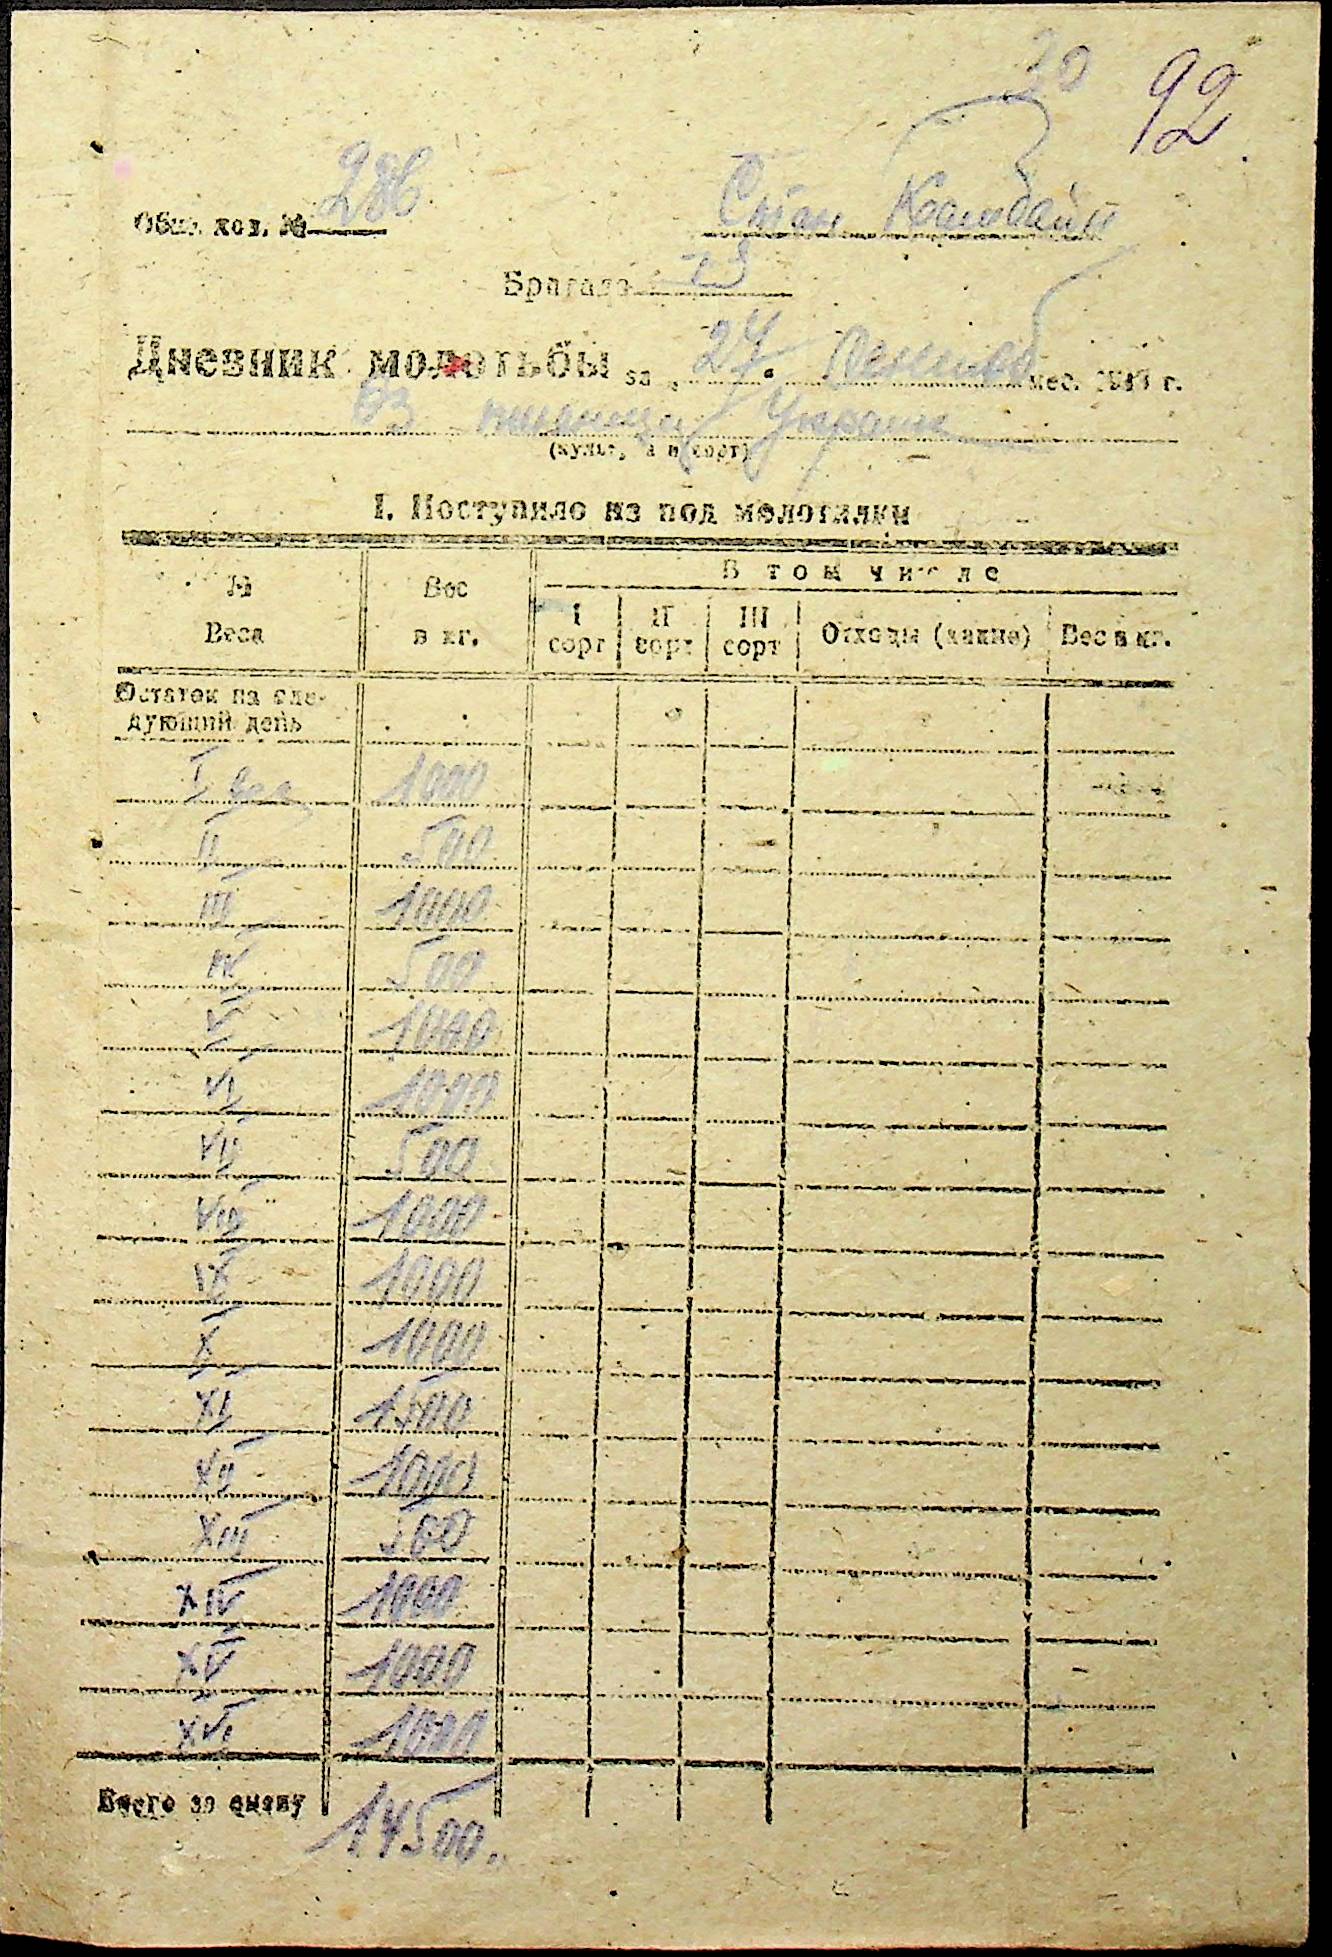 30 92
Общ. кол. № 286 Стан Комбайн
Бригада 73
Дневник молотьбы за „ 24 “ мес. 194 г.
Оз пшеница Украин
(культура и сорт)
I. Поступило из под молотилки
№ Веса Вес в кг. В том числе
I сорт II сорт III сорт Отходы (какие) Вес в кг.
Остаток на сле-
дующий день
I вес 1000
II 500
III 1000
IV 500
V 1000
VI 1000
VII 500
VIII 1000
IX 1000
X 1000
XI 1500
XII 1000
XIII 500
XIV 1000
XV 1000
XVI 1000
Всего за смену 14500